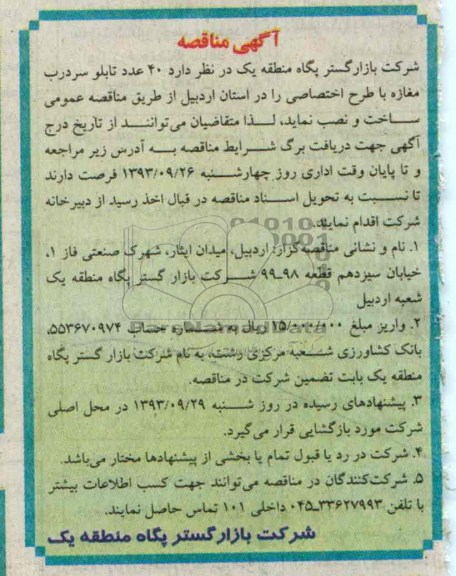 آگهی مناقصه
شرکت بازارگستر پگاه منطقه یک در نظر دارد ۴۰ عدد تابلو سردرب
مغازه با طرح اختصاصی را در استان اردبیل از طریق مناقصه عمومی
ساخت و نصب نماید، لـذا متقاضیان می‌توانند از تاریخ درج
آگهی جهت دریافت برگ شرایط مناقصه به آدرس زیر مراجعه
و تا پایان وقت اداری روز چهارشنبه ۱۳۹۳/۰۹/۲۶ فرصت دارند
تا نسبت به تحویل اسناد مناقصه در قبال اخذ رسید از دبیرخانه
شرکت اقدام نمایند.
۱. نام و نشانی مناقصه‌گزار: اردبیل، میدان ایثار، شهرک صنعتی فاز ۱،
خیابان سیزدهم قطعه ۹۸ـ۹۹ شرکت بازار گستر پگاه منطقه یک
شعبه اردبیل
۲. واریز مبلغ ریال به شماره حساب ۵۵۳۶۷۰۹۷۴،
بانک کشاورزی شعبه مرکزی رشت، به نام شرکت بازار گستر پگاه
منطقه یک بابت تضمین شرکت در مناقصه.
۳. پیشنهادهای رسیده در روز شنبه ۱۳۹۳/۰۹/۲۹ در محل اصلی
شرکت مورد بازگشایی قرار می‌گیرد.
۴. شرکت در رد یا قبول تمام یا بخشی از پیشنهادها مختار می‌باشد.
۵. شرکت‌کنندگان در مناقصه می‌توانند جهت کسب اطلاعات بیشتر
با تلفن ۳۳۶۲۷۹۹۳ـ۰۴۵ داخلی ۱۰۱ تماس حاصل نمایند.
شرکت بازارگستر پگاه منطقه یک